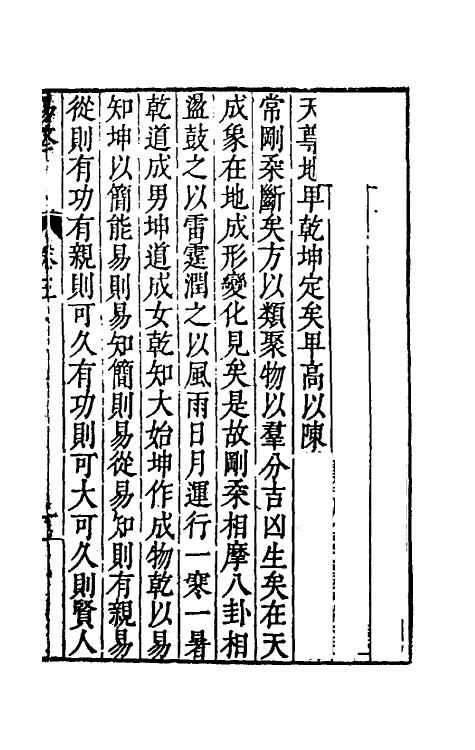 天尊地卑乾坤定矣卑高以陳
常剛柔斷矣方以類聚物以羣分吉凶生矣在天
成象在地成形變化見矣是故剛柔相摩八卦相
盪鼓之以雷霆潤之以風雨日月運行一寒一暑
乾道成男坤道成女乾知大始坤作成物乾以易
知坤以簡能易則易知簡則易從易知則有親易
從則有功有親則可久有功則可大可久則賢人